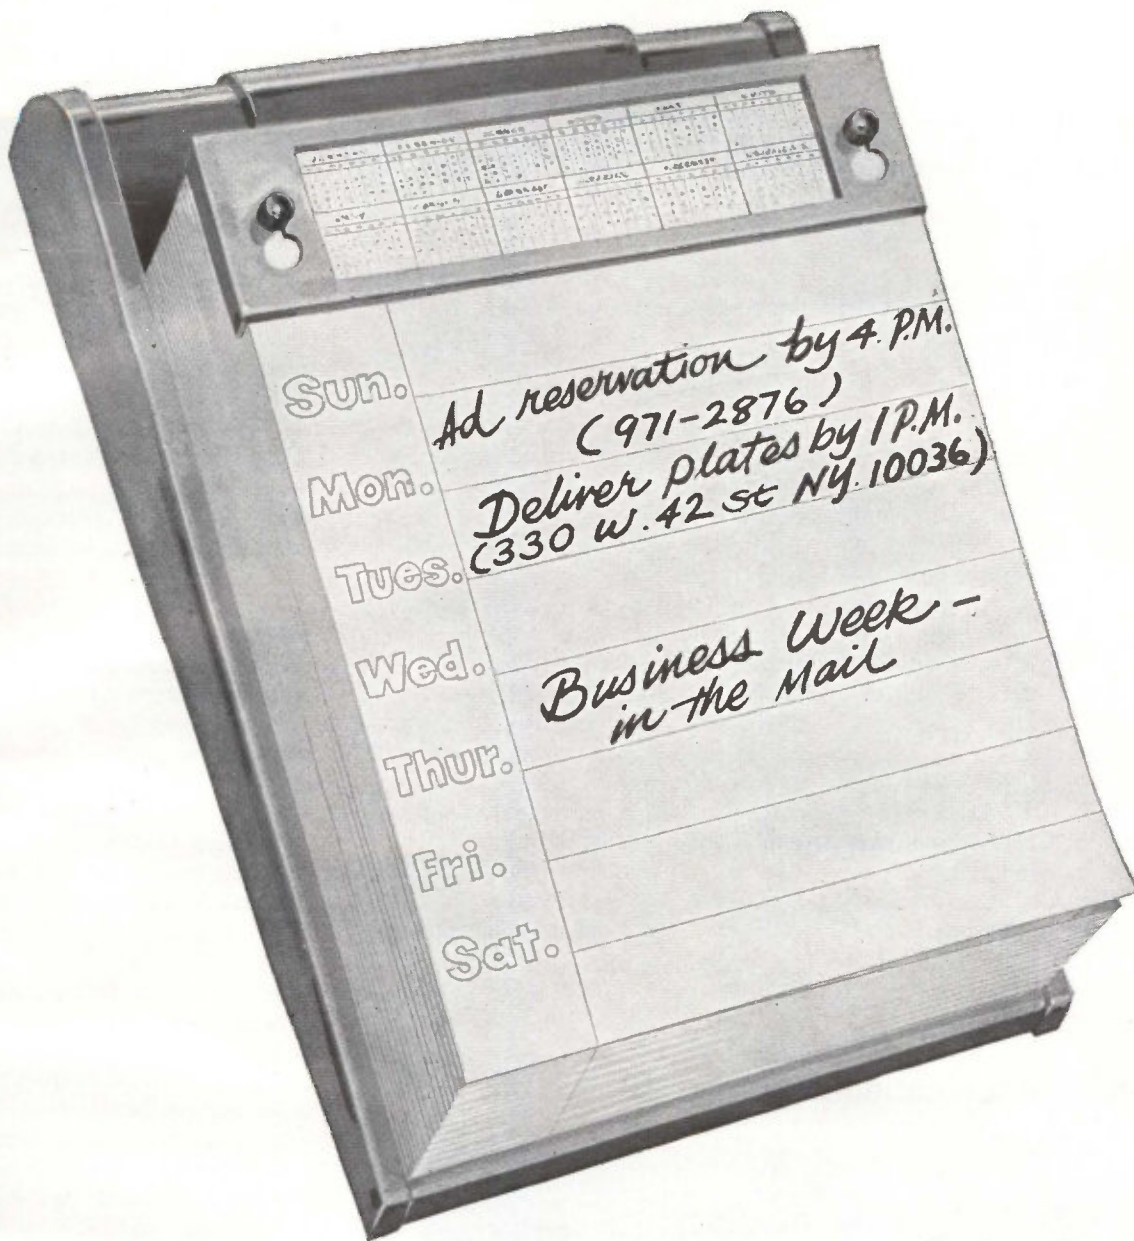 Sun.
Ad reservation by 4 P.M.
(971-2876)
Mon.
Deliver plates by 1 P.M.
(330 W. 42 St NY. 10036)
Tues.
Wed.
Business Week –
in the Mail
Thur.
Fri.
Sat.